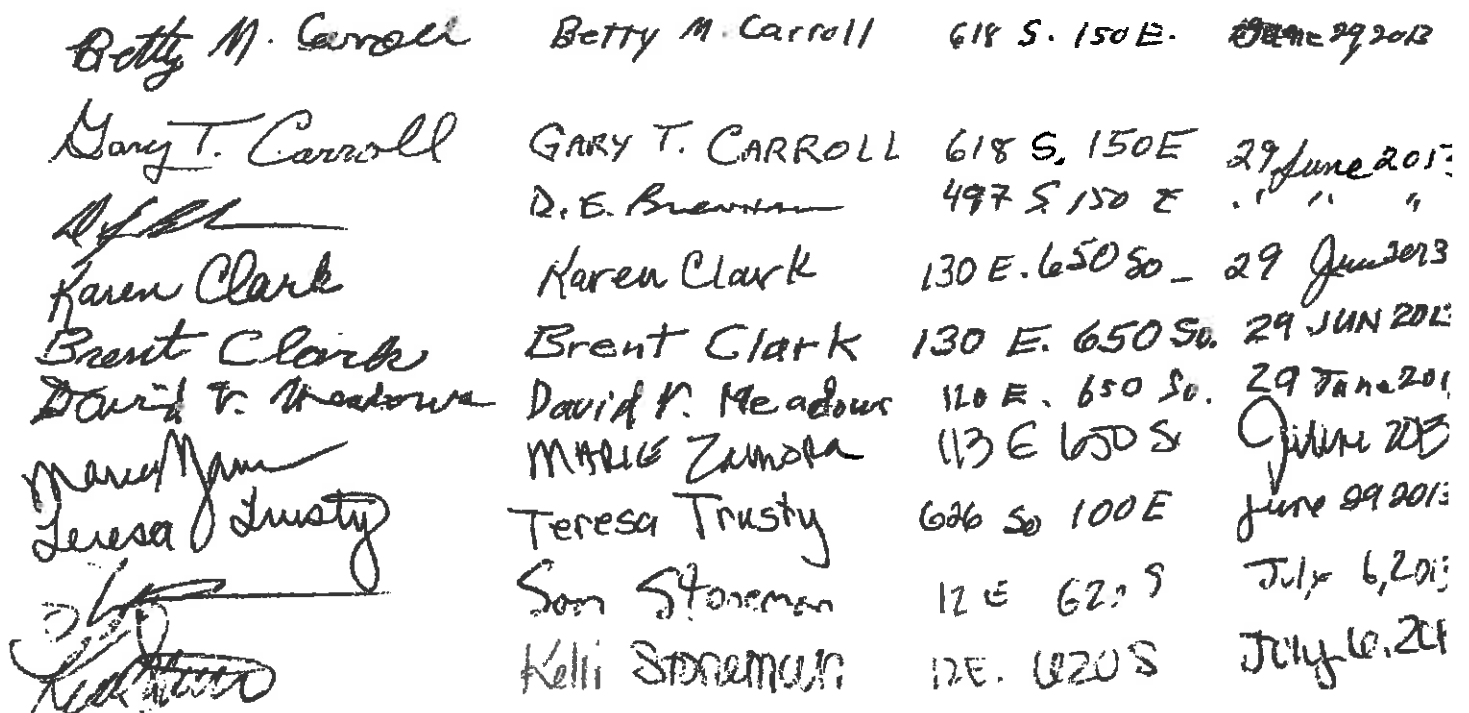 Betty M. Carroll Betty M. Carroll 618 S. 150 E. June 29, 2013
Gary T. Carroll GARY T. CARROLL 618 S. 150 E 29 June 2013
D. E. 497 S. 150 E " " "
Karen Clark Karen Clark 130 E. 650 So 29 Jun 2013
Brent Clark Brent Clark 130 E. 650 So. 29 JUN 2013
David V. Meadows David V. Meadows 120 E. 650 So. 29 June 201
MARIE Zamora 113 E 650 S 2013
Teresa Trusty Teresa Trusty 626 So 100 E June 29 2013
Sam Stoneman 12 E 620 S July 6, 2013
Kelli Stoneman 12 E. 620 S July 6, 201